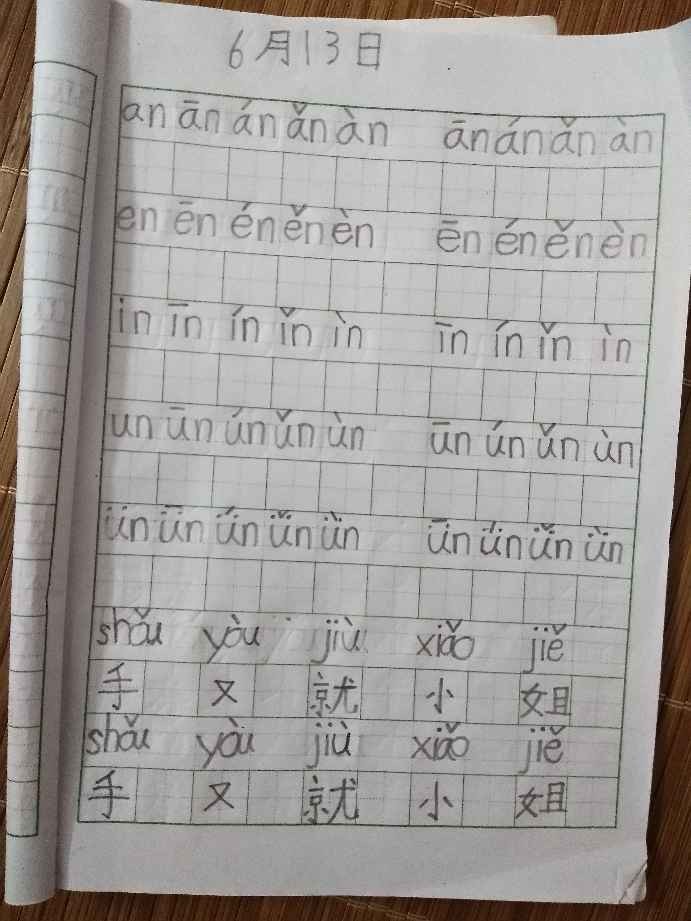 6月13日
an ān án ǎn àn ān án ǎn àn
en ēn én ěn èn ēn én ěn èn
in īn ín ǐn ìn īn ín ǐn ìn
un ūn ún ǔn ùn ūn ún ǔn ùn
ün ǖn ǘn ǚn ǜn ǖn ǘn ǚn ǜn
shǒu yòu jiù xiǎo jiě
手 又 就 小 姐
shǒu yòu jiù xiǎo jiě
手 又 就 小 姐